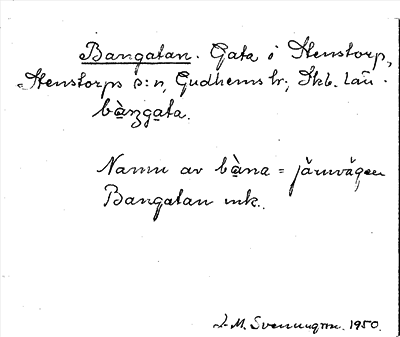 Bangatan. Gata i Stenstorp,
Stenstorps s:n, Gudhems hr; Skb. län.
bàngata.
Namn av bàna = järnvägen
Bangatan mk.
1950.